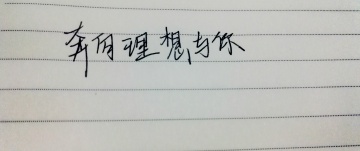 奔向理想与你